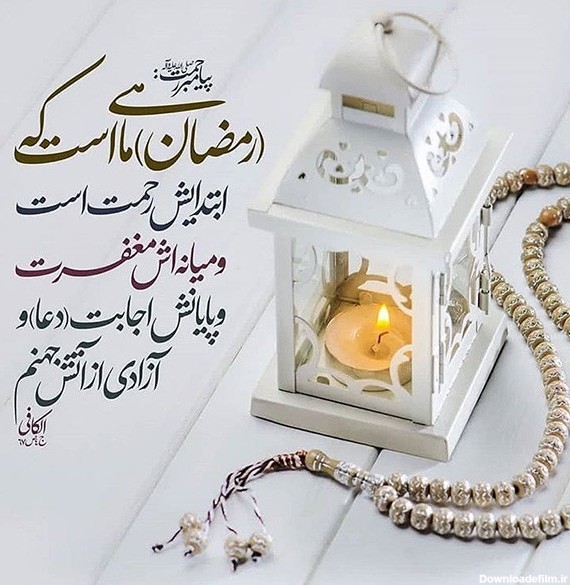 پیامبر رحمت صلی الله علیه و آله:
(رمضان) ماهی است که
ابتدایش رحمت است
و میانه اش مغفرت
و پایانش اجابت (دعا) و
آزادی از آتش جهنم
الکافی
ج۴ ص ۶۷
Downloadefilm.ir